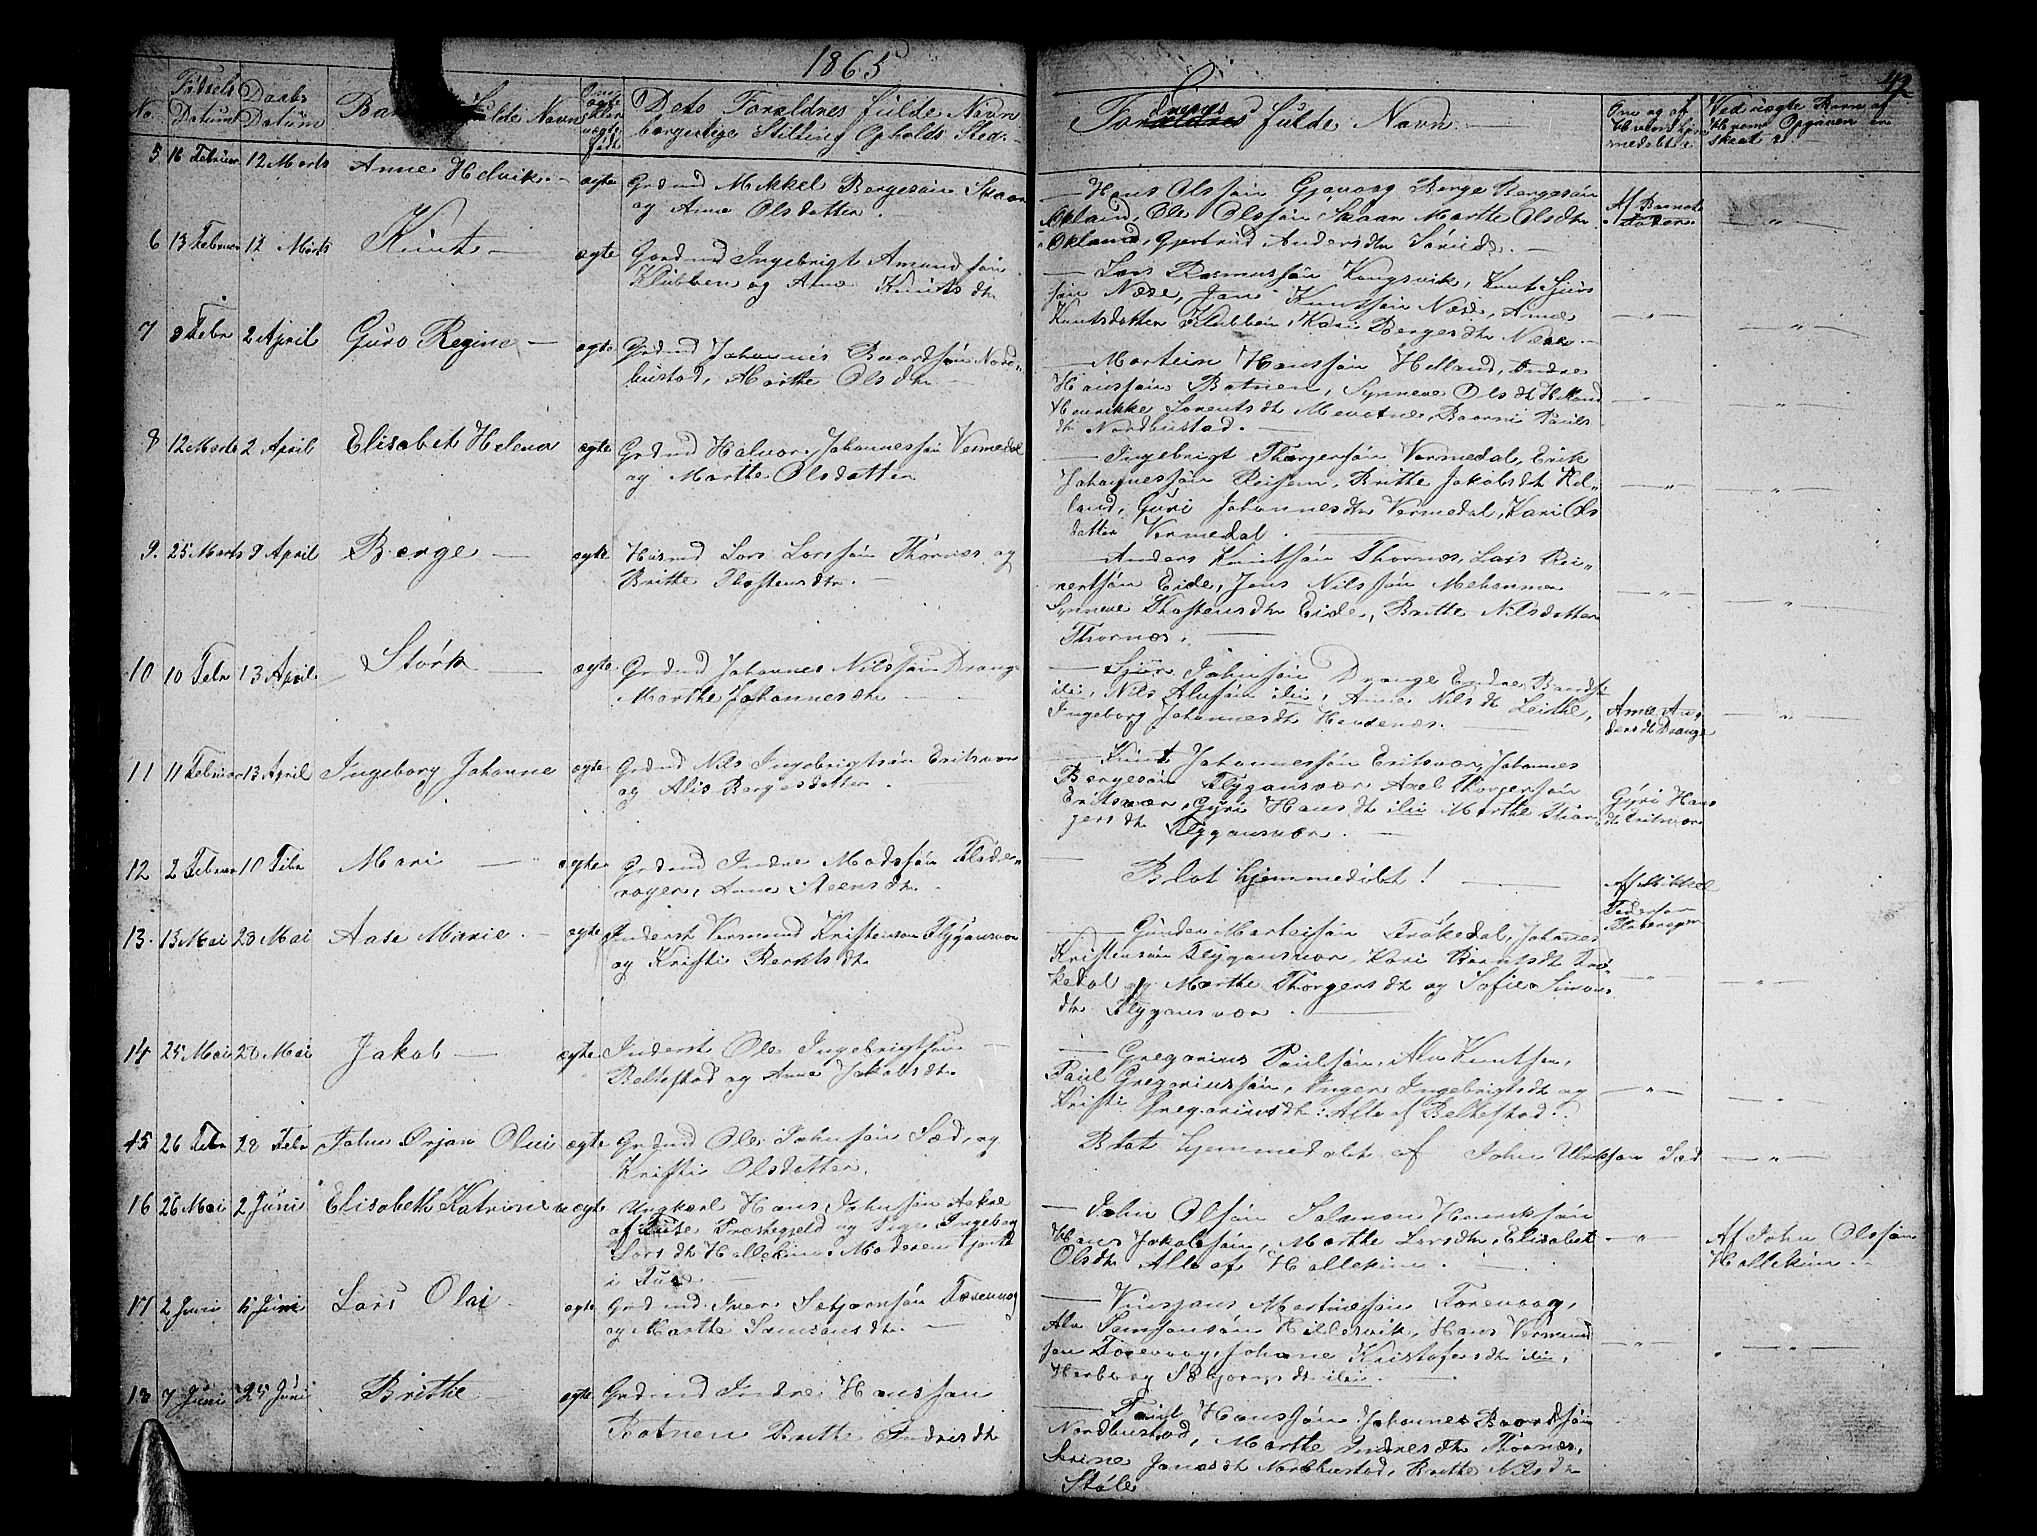 1865
42
No. Fødsels Datum Daabs Datum Barnets fulde Navn Om ægte eller uægte født Dets Foraldres fulde Navn
borgerlige Stilling Opholds Sted.
Fadderes fulde Navn
Om og af hvem hjemmedøbt
Ved uægte Børn af
hvem Opgaven er
skeet
5 16 Februar 12 Marts Anne Helvik ægte Grdmd Mikkel Bergesøn Skaar
og Anna Olsdatter.
Hans Olssøn Gjøvaag Berge Bergesøn
Økland, Ole Olssøn Skaar Marthe Olsdtr
Økland, Gjertrud Andersdtr
Af Barnets
Fader
6 13 Februar 12 Marts Knut ægte Gardmd Ingebrigt Amundssøn
Klubben og Anna Knutsdtr
Lars Rasmussøn Kongsvik, Knut Sjurs
søn Næse, Jan Knutssøn Næse, Anna
Knutsdatter Klubben, Kari Bergesdtr Næse
7 9 Febr 2 April Guro Regine ægte Grdmd Johannes Baardsøn Nord-
bustad, Marthe Olsdtr
Mortein Hanssøn Helland, Endre
Hanssøn Botnen, Synneve Olsdtr Helland
Henrikke Lorentsdtr Paals
dtr Nordbustad.
8 12 Marts 2 April Elisabet Helena ægte Grdmd Halvor Johannessøn Vermedal
og Marthe Olsdatter
Ingebrigt Thorgersøn Vermedal, Erik
Johannessøn Reisem, Britte Jakobsdtr Røl-
land, Guri Johannesdtr Vermedal, Kari Ols
datter Vermedal
9. 25 Marts 9 April Berge ægte Husmd Lars Larssøn Thornæs og
Britte Thostensdtr.
Anders Knutssøn Thornæs, Lars Rei-
nertsøn Eide, Jens Nilssøn
Synneve Thostensdtr Eide, Britte Nilsdatter
Thornæs.
10 10 Febr 13 April Størk ægte Grdmd Johannes Nilssøn Drange
Marthe Johannesdtr
Sjur Johnsøn Drange Endre Baards
ibi, Nils Alvsøn ibi, Anna Nilsdtr Leithe,
Ingeborg Johannesdtr
Anna An-
dersdtr Drange
11 11 Februar 13 April Ingeborg Johanne ægte Grdmd Nils Ingebrigtsøn Eritsvær
og Alis Bergesdatter.
Knut Johannessøn Eritsvær, Johannes
Bergesøn Flygansvær Axel Thorgersøn
Eritsvær, Gyri Hansdtr ibi Marthe Thor-
gersdtr Flygansvær.
Gyri Hans
dtr Eritsvær
12 2 Februar 10 Febr Mari ægte Grdmd Endre Madssøn
Anna
Blot hjemmedøbt!
Af Mikkel
13. 13 Mai 28 Mai Aase Marie ægte Inderst Vermund Kristensen Flygansvær
og Kristi Berntsdtr
Gunder Marteissøn Frøkedal, Johannes
Kristensøn Flygansvær, Kari Berntsdtr Frø-
kedal og Marthe Thorgersdtr og Sofie Simons
dtr Flygansvær.
14 25 Mai 28 Mai Jakob ægte Inderst Ole Ingebrigtssøn
Beltestad og Anna Jakobsdtr
Gregorius Paulsøn, Alv Knutsen,
Paul Gregoriussøn, Inger Ingebrigtsdtr og
Kristi Gregoriusdtr: Alle af Beltestad.
15 26 Febr 28 Febr John Ørjan Olai ægte Grdmd Ole Johnsøn Sæd, og
Kristi Olsdatter.
Blot hjemmedøbt af John Ulriksøn Sæd
16 26 Mai 2 Juni Elisabeth Katrine uægte Ungkarl Hans Johnsøn Aakre
af Fuse Præstegjeld og Pige Ingeborg
Larsdtr Hallekim. Moderen tjente
i Fuse
John Olsøn Salamon Henriksøn
Hans Jakobsøn, Marthe Larsdtr, Elisabet
Olsdtr Alle af Hallekim.
Af John Olssøn
Hallekim.
17 2 Juni 5 Juni Lars Olai ægte Grdmd. Iver Sæbjørnsøn Forevaag
og Marthe Samsonsdtr.
Vinsjans Martinessøn Forevaag,
Alv Samsonsøn Hillesvik, Hans Vermund
søn Forevaag, Johane Kristofersdtr ibi,
Herborg Sæbjørnsdtr ibi.
18 7 Juni 25 Juni Brithe ægte Grdmd Endre Hanssøn
Botnen Britte Endresdtr
Paul Hanssøn, Johannes Baardssøn
Nordbustad, Marthe Endresdtr Thornæs,
Serine Jonasdtr Nordbustad, Britte Nilsdtr
Støle